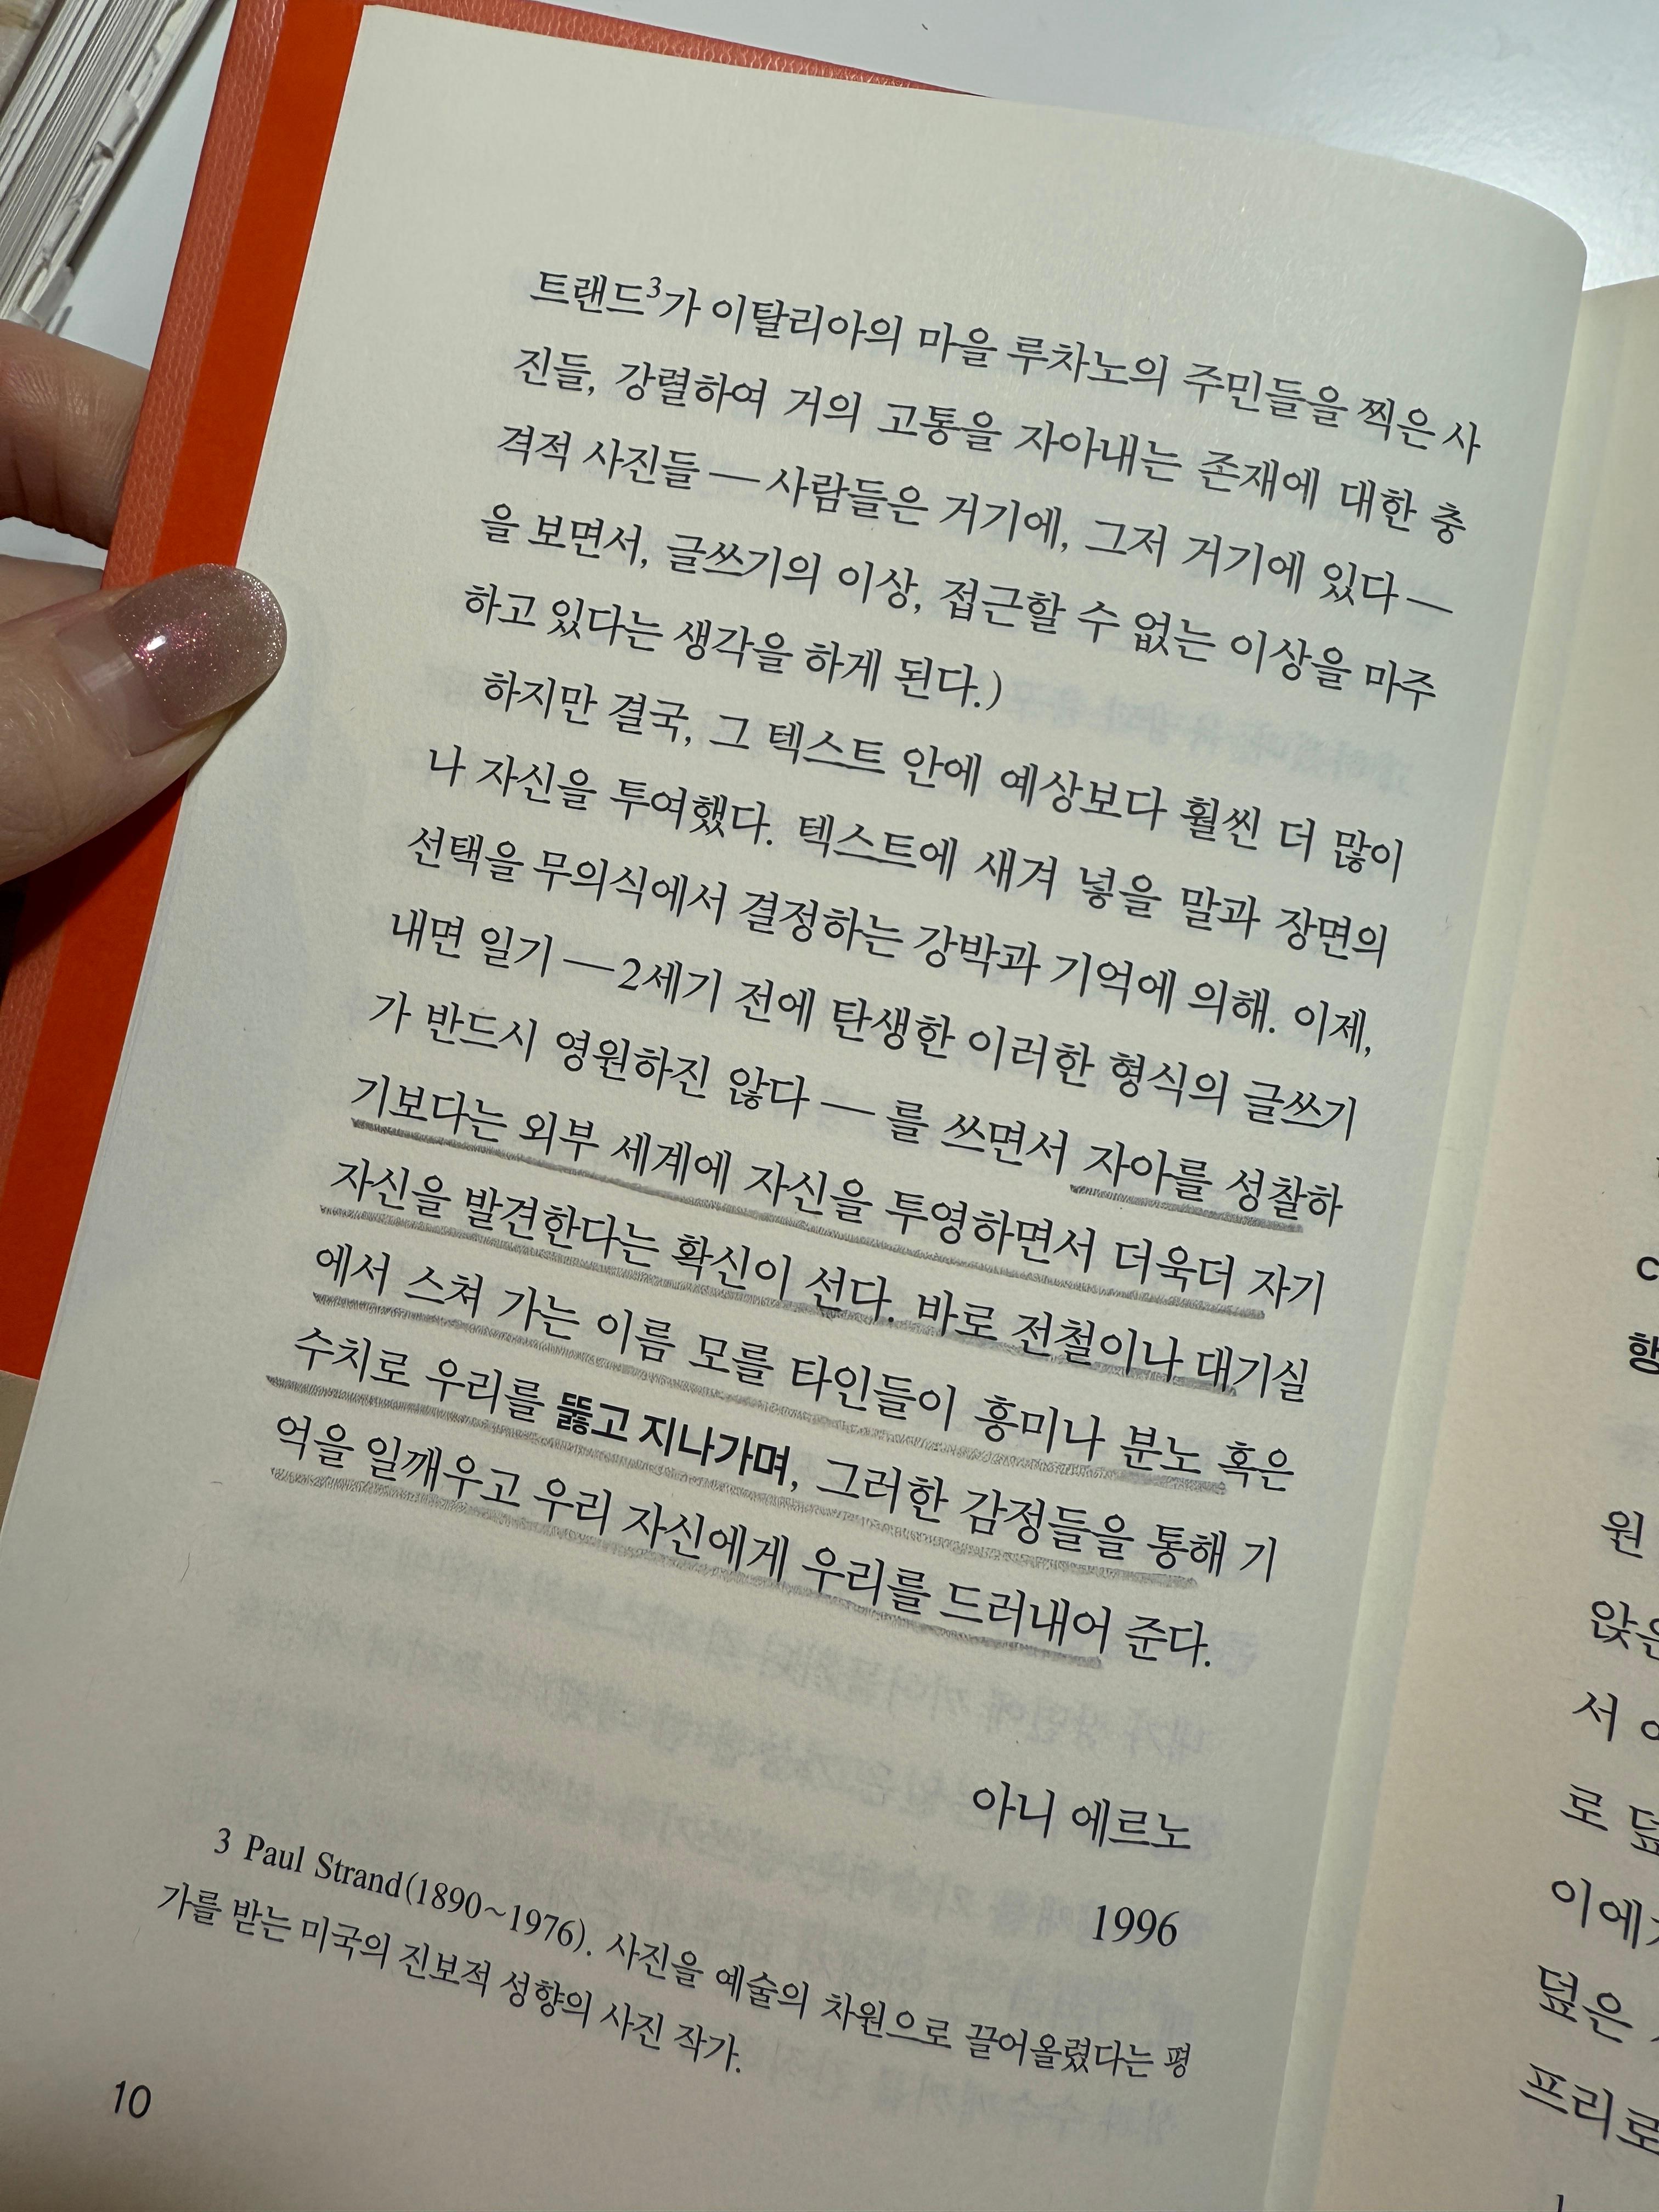 트랜드3가 이탈리아의 마을 루차노의 주민들을 찍은 사
진들, 강렬하여 거의 고통을 자아내는 존재에 대한 충
격적 사진들 — 사람들은 거기에, 그저 거기에 있다 —
을 보면서, 글쓰기의 이상, 접근할 수 없는 이상을 마주
하고 있다는 생각을 하게 된다.)
하지만 결국, 그 텍스트 안에 예상보다 훨씬 더 많이
나 자신을 투여했다. 텍스트에 새겨 넣을 말과 장면의
선택을 무의식에서 결정하는 강박과 기억에 의해. 이제,
내면 일기 — 2세기 전에 탄생한 이러한 형식의 글쓰기
가 반드시 영원하진 않다 — 를 쓰면서 자아를 성찰하
기보다는 외부 세계에 자신을 투영하면서 더욱더 자기
자신을 발견한다는 확신이 선다. 바로 전철이나 대기실
에서 스쳐 가는 이름 모를 타인들이 흥미나 분노 혹은
수치로 우리를 뚫고 지나가며, 그러한 감정들을 통해 기
억을 일깨우고 우리 자신에게 우리를 드러내어 준다.
아니 에르노
1996
3 Paul Strand(1890~1976). 사진을 예술의 차원으로 끌어올렸다는 평
가를 받는 미국의 진보적 성향의 사진 작가.
10
행
원
앉은
서
로
이에
덮은
프리로